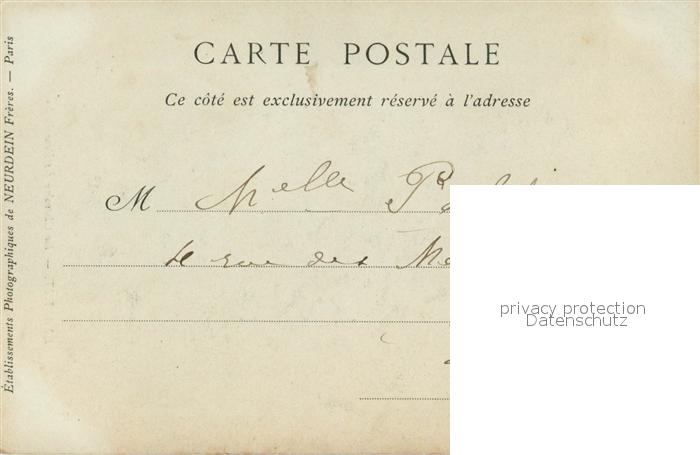 CARTE POSTALE
Ce côté est exclusivement réservé à l'adresse
M Melle
rue des
privacy protection
Datenschutz
Établissements Photographiques de NEURDEIN Frères. — Paris